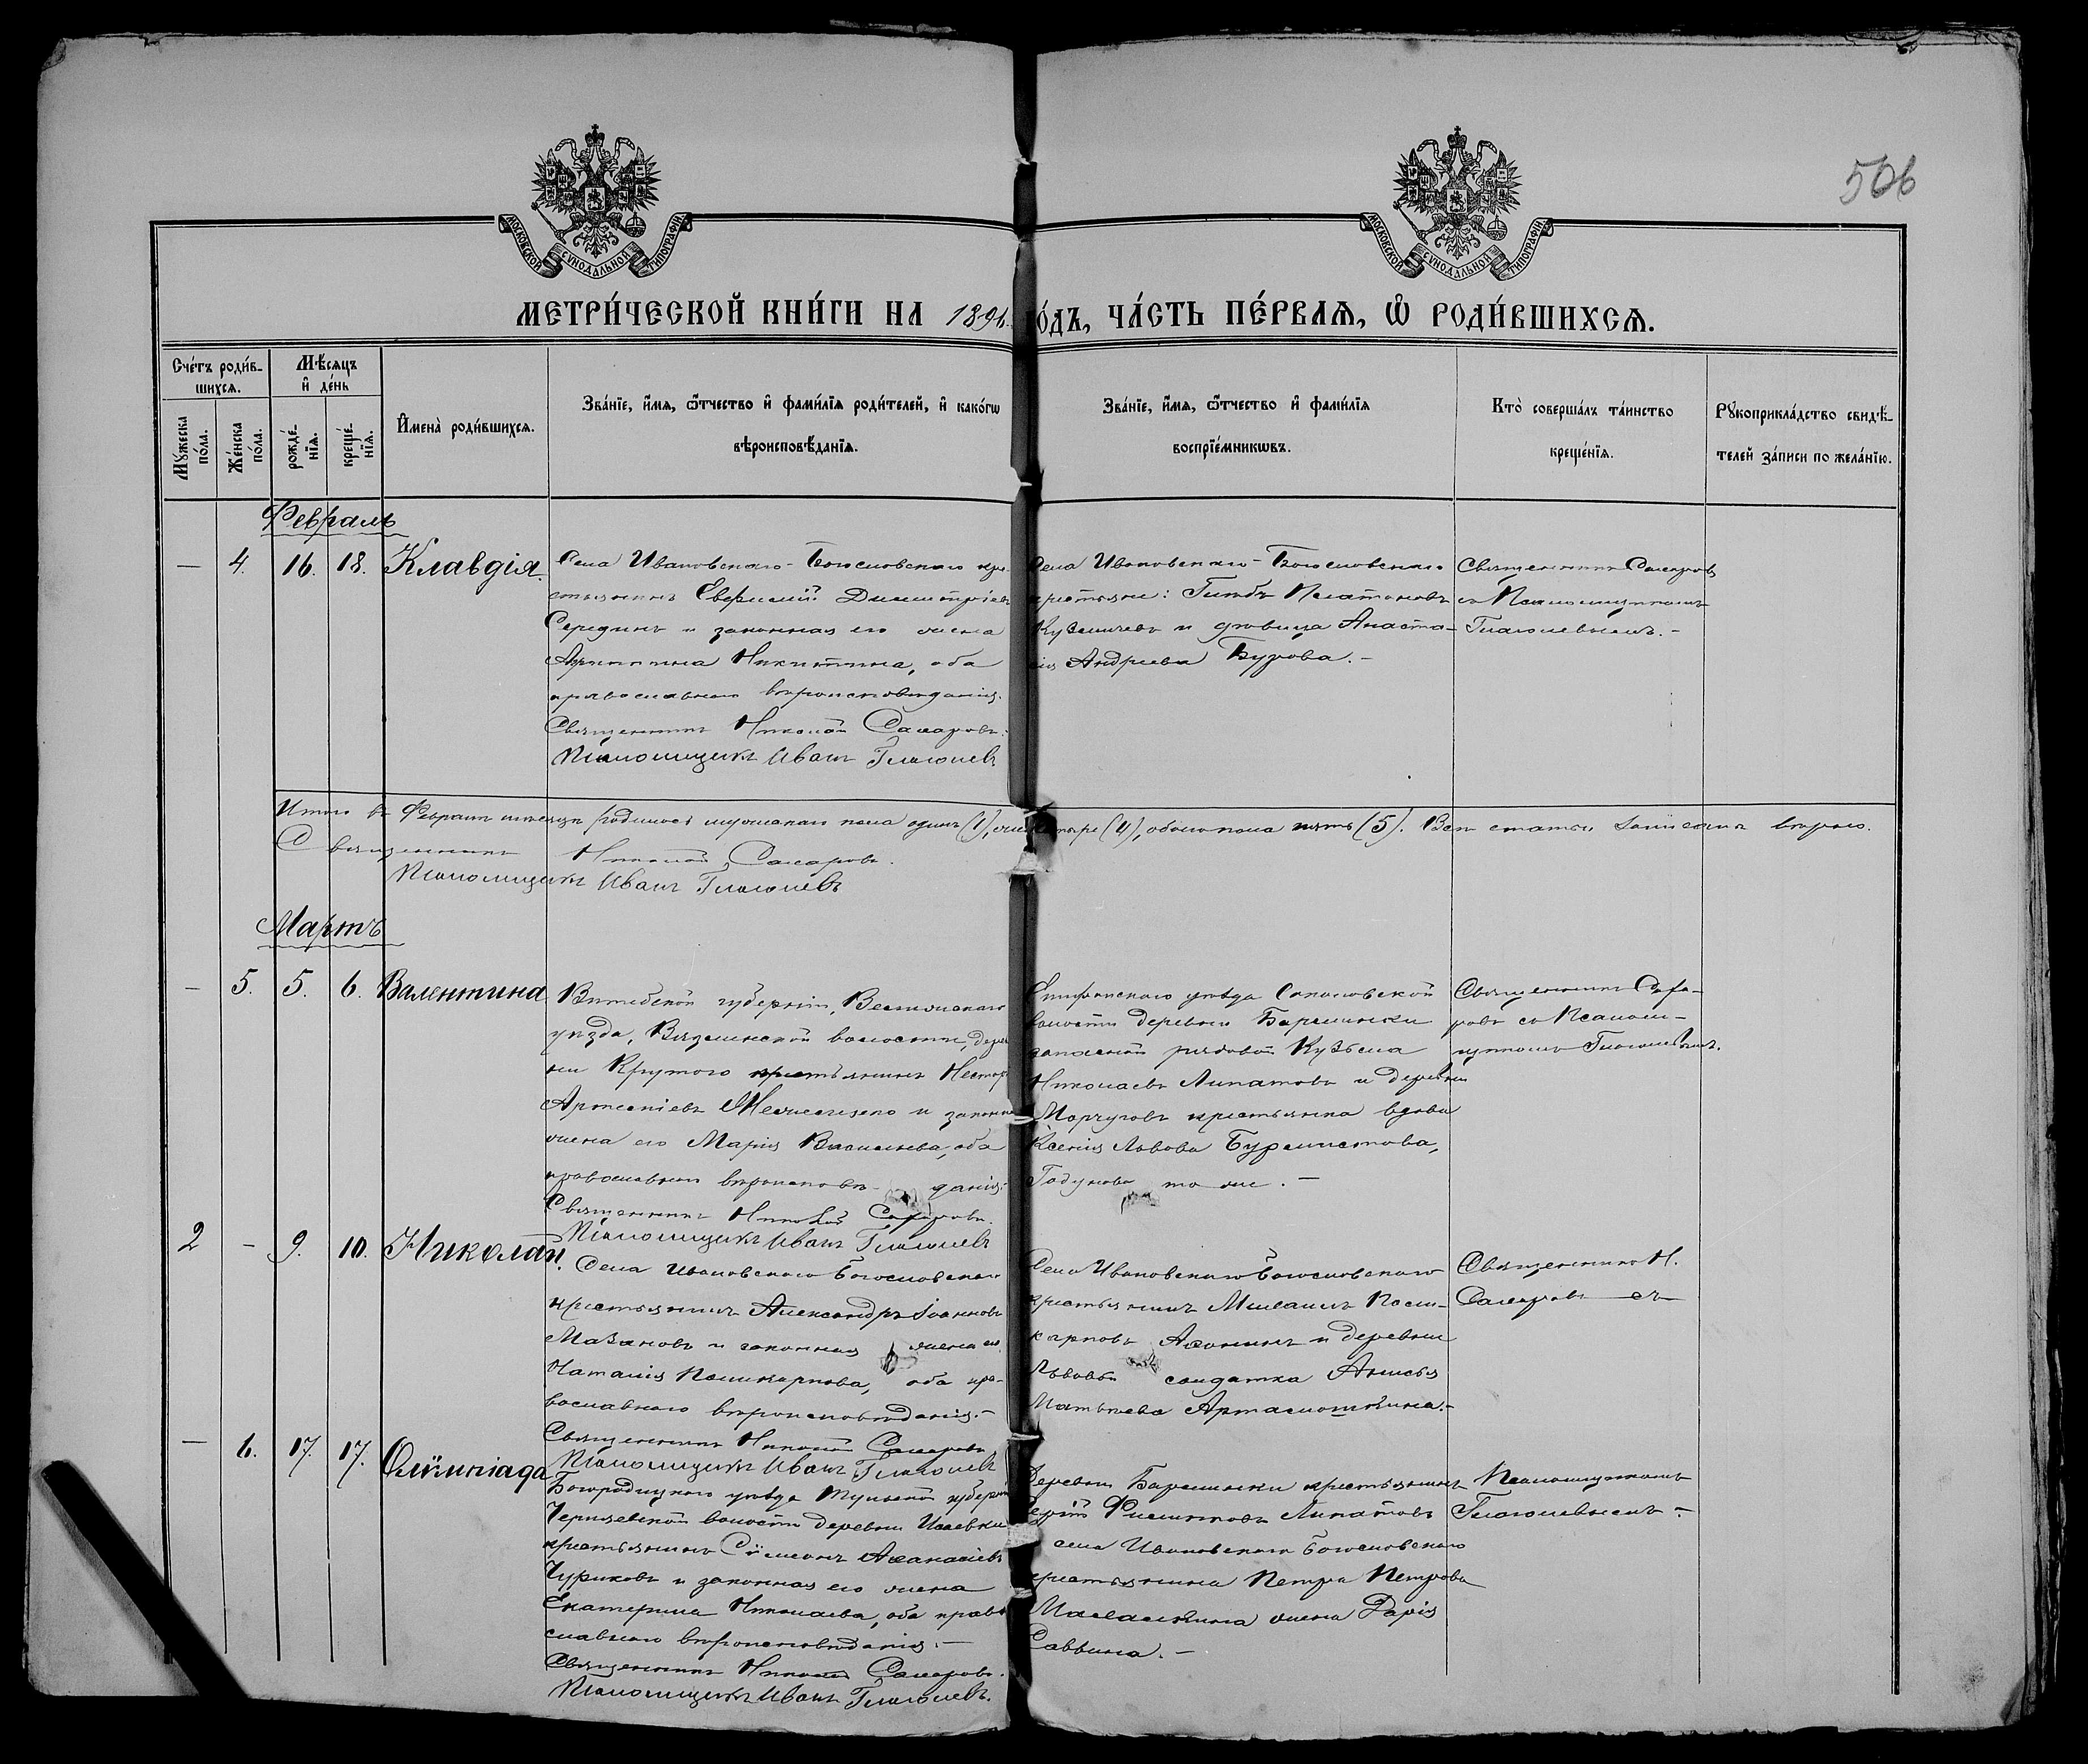 506
МОСКОВСКОЙ СѴНОДАЛЬНОЙ ТИПОГРАФІИ.
МОСКОВСКОЙ СѴНОДАЛЬНОЙ ТИПОГРАФІИ.
МЕТРИ́ЧЕСКОЙ КНИ́ГИ НА 1896 го́дъ, ЧА́СТЬ ПЕ́РВАѦ, Ѡ РОДИ́ВШИХСѦ.
Сче́тъ роди́в-
шихсѧ.
Мꙋ́жеска по́ла.
Же́нска по́ла.
Мѣ́сѧцъ
и҆ де́нь
рожде́-
нїѧ.
креще́-
нїѧ.
И҆мена̀ роди́вшихсѧ.
Зва́нїе, и҆́мѧ, ѻ҆́тчество и҆ фами́лїѧ роди́телей, и҆ како́гѡ
вѣроисповѣ́данїѧ.
Зва́нїе, и҆́мѧ, ѻ҆́тчество и҆ фами́лїѧ
воспрїе́мникѡвъ.
Кто̀ соверша́лъ та́инство
креще́нїѧ.
Рꙋкоприкла́дство свидѣ́-
телей за́писи по жела́нїю.
Февраль
— 4. 16. 18. Клавдія.
Села Ивановскаго-Богословскаго кре-
стьянинъ Евфимій Димитріевъ
Середин и законная его жена
Агриппина Никитина, оба
православнаго вѣроисповѣданія.
Священникъ Николай Сахаровъ.
Псаломщикъ Иванъ Глаголевъ
Села Ивановскаго-Богословскаго
крестьяне: Глѣбъ Платоновъ
Кузмичевъ и дѣвица Анаста-
сія Андреева Бурова. —
Священникъ Сахаровъ
съ Псаломщикомъ
Глаголевымъ. —
Итого въ Февралѣ мѣсяцѣ родилось мужескаго пола одинъ (1), четыре (4), обоего пола пять (5). Всѣ статьи записаны вѣрно.
Священникъ Николай Сахаровъ.
Псаломщикъ Иванъ Глаголевъ
Мартъ
— 5. 5. 6. Валентина
Витебской губерніи, Велижскаго
уѣзда, Вяземской волости, дерев
ни Крутого крестьянинъ Несторъ
Арсеніевъ и законная
жена его Марія Васильева, оба
православнаго вѣроисповѣ- данія.
Священникъ Николай Сахаровъ.
Псаломщикъ Иванъ Глаголевъ
Епифанскаго уѣзда
волости деревни Бармынки
запасной рядовой Кузьма
Николаевъ Липатовъ и деревни
крестьянка вдова
Ксенія Львова Бурмистрова,
Годунова то же. —
Священникъ Саха-
ровъ съ Псалом-
щикомъ Глаголевымъ.
2 — 9. 10. Николай.
Села Ивановскаго Богословскаго
крестьянинъ Александръ Іоанновъ
Мазановъ и законная жена его
Наталія Поликарпова, оба пра-
вославнаго вѣроисповѣданія. —
Священникъ Николай Сахаровъ
Псаломщикъ Иванъ Глаголевъ
Села Ивановскаго Богословскаго
крестьянинъ Михаилъ Поли-
карповъ Аѳонинъ и деревни
Львовки солдатка Анисья
Матвѣева Артамошкина. —
Священникъ Н.
Сахаровъ съ
— 6. 17. 17. Олимпіада
Богородицкаго уѣзда Тульской губерніи
волости деревни
крестьянинъ Сѵмеонъ Аѳанасіевъ
Чуриковъ и законная его жена
Екатерина Николаева, оба право
славнаго вѣроисповѣданія. —
Священникъ Николай Сахаровъ.
Псаломщикъ Иванъ Глаголевъ.
Деревни Бармынки крестьянинъ
Сергій Филипповъ Липатовъ
села Ивановскаго Богословскаго
крестьянина Петра Петрова
жена Дарія
Саввина. —
Псаломщикомъ
Глаголевымъ —